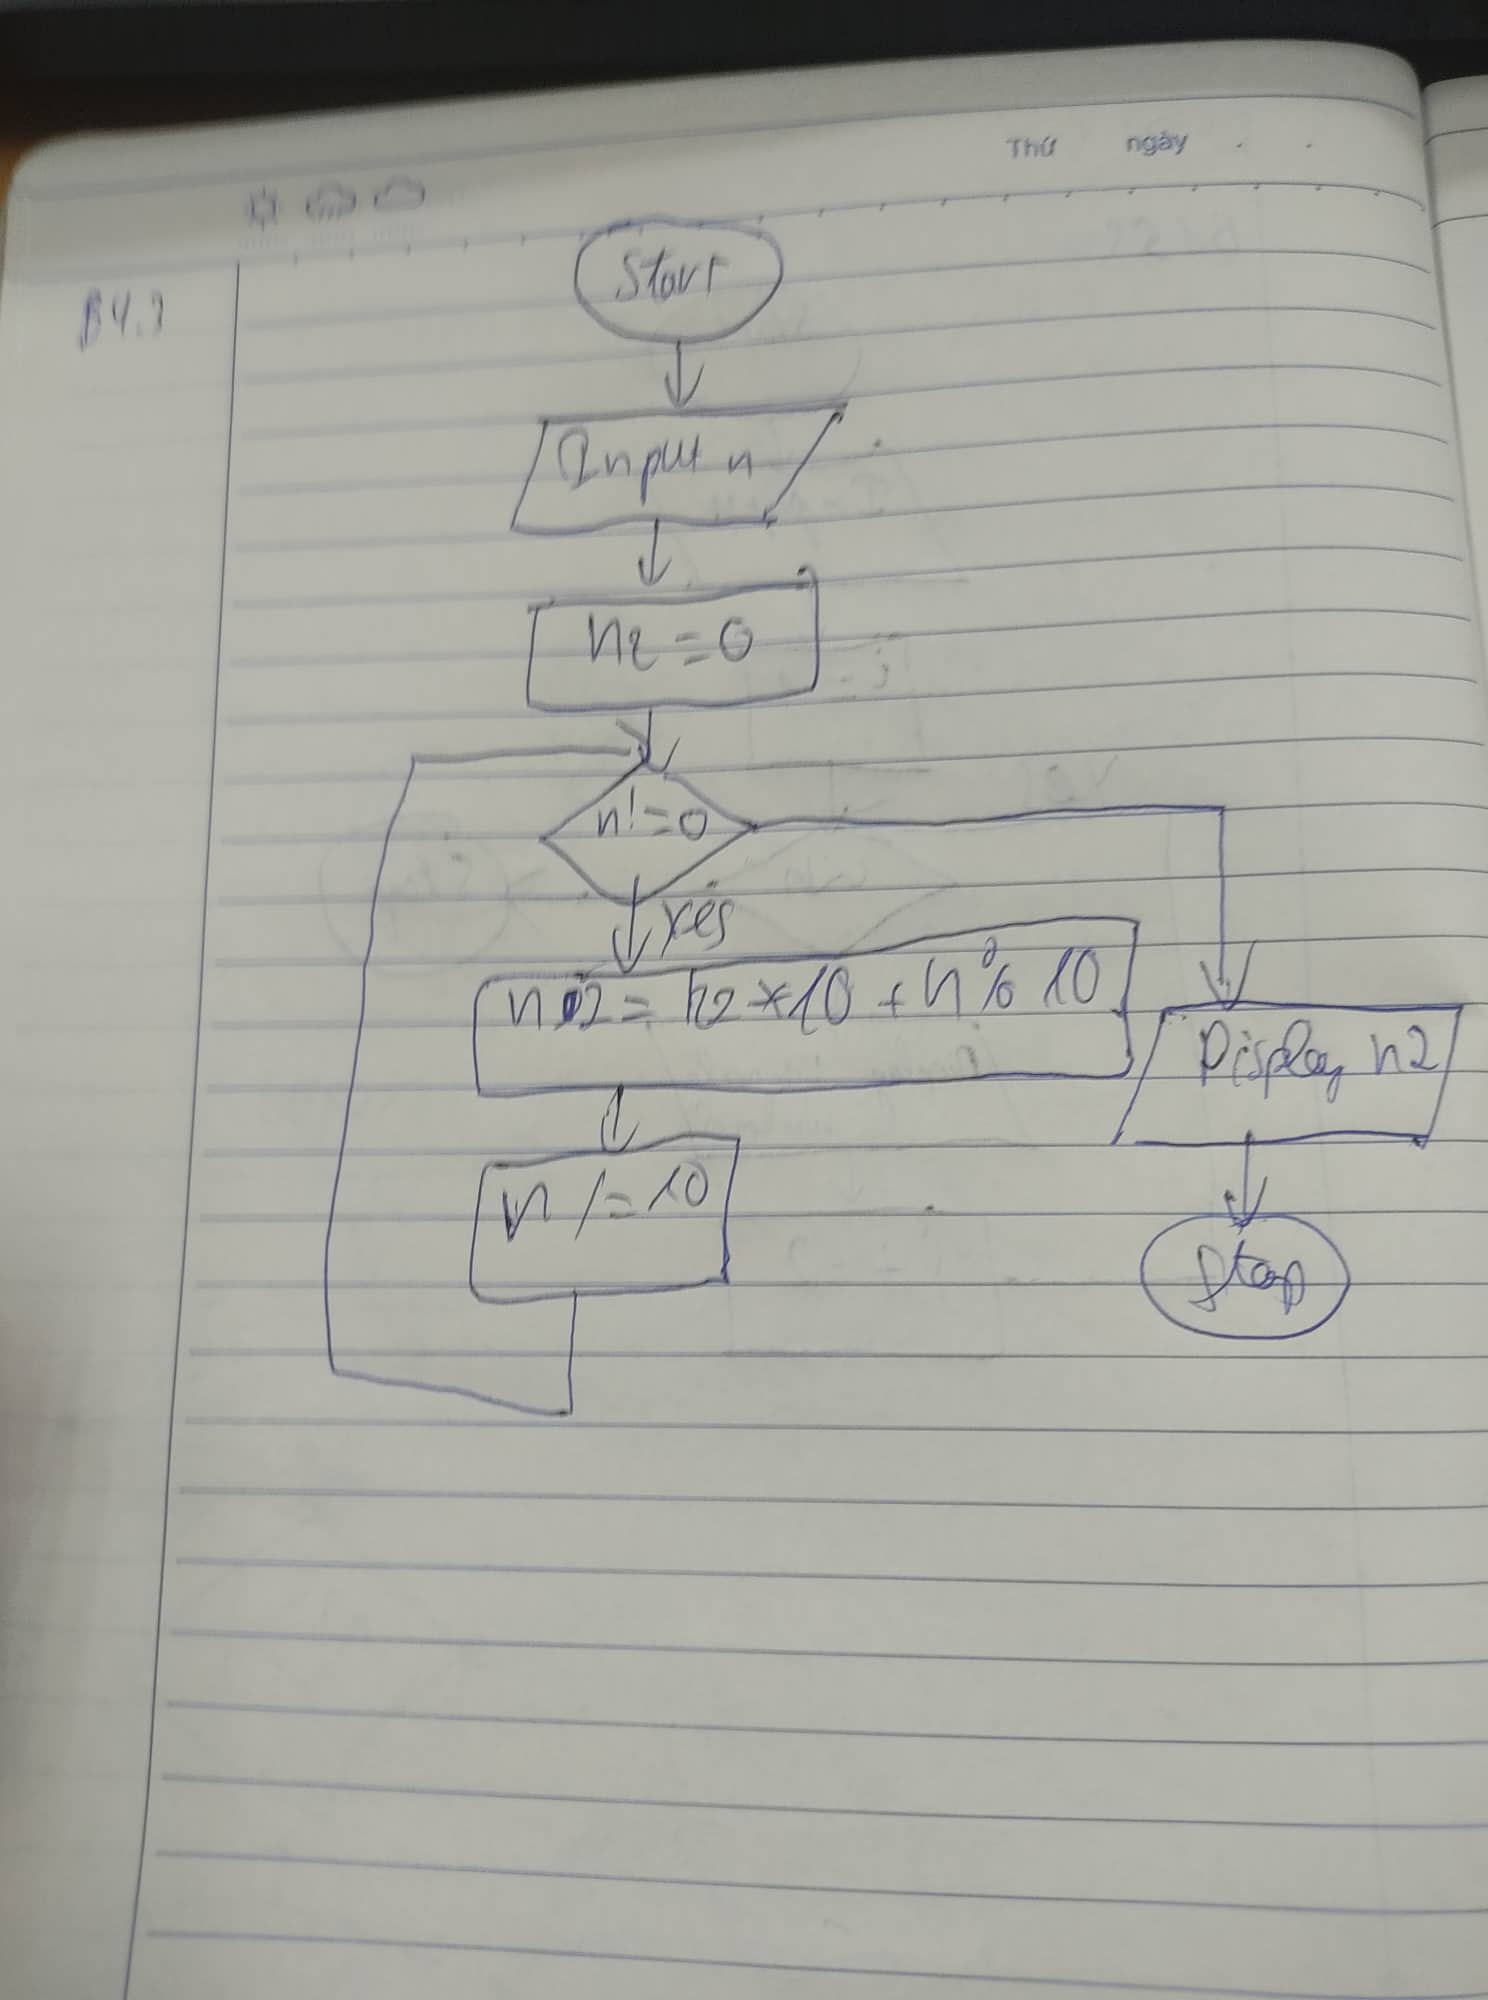 Thứ ngày . .
B4.3
Start
Input n
n2 = 0
n! = 0
yes
n2 = n2 * 10 + n % 10
Display n2
n /= 10
Stop